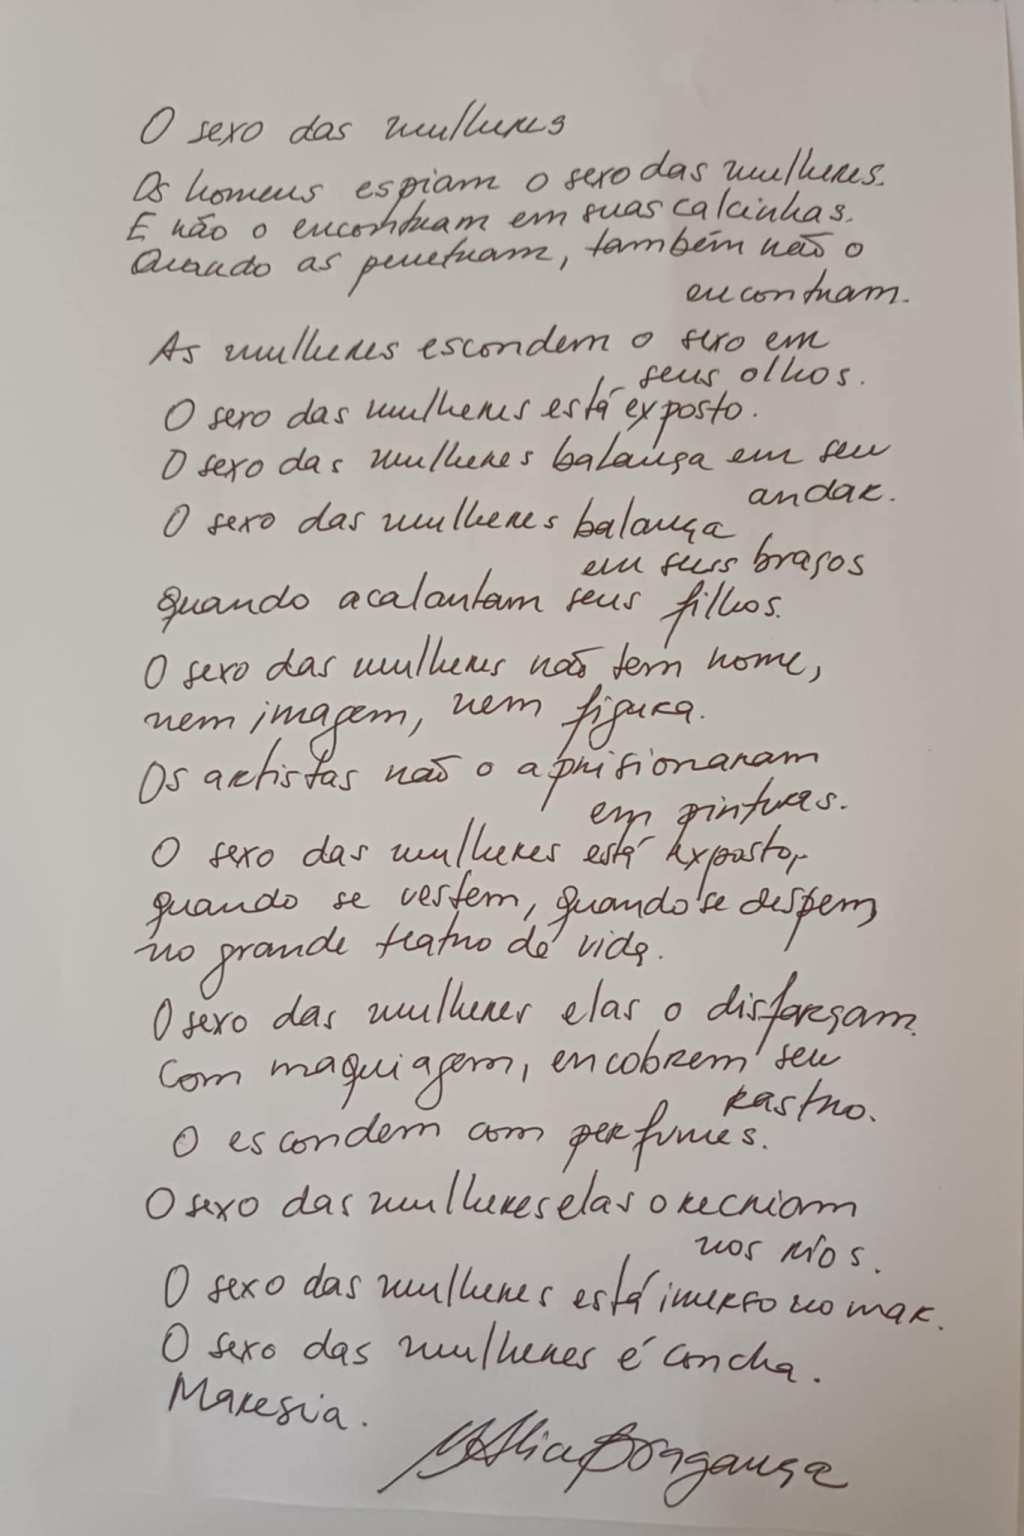 O sexo das mulheres
Os homens espiam o sexo das mulheres.
E não o encontram em suas calcinhas.
Quando as penetram, também não o
encontram.
As mulheres escondem o sexo em
seus olhos.
O sexo das mulheres está exposto.
O sexo das mulheres balança em seu
andar.
O sexo das mulheres balança
em seus braços
quando acalantam seus filhos.
O sexo das mulheres não tem nome,
nem imagem, nem figura.
Os artistas não o aprisionaram
em pinturas.
O sexo das mulheres está exposto,
quando se vestem, quando se despem,
no grande teatro da vida.
O sexo das mulheres elas o disfarçam
com maquiagem, encobrem seu
rastro.
O escondem com perfumes.
O sexo das mulheres elas o recriam
nos rios.
O sexo das mulheres está imerso no mar.
O sexo das mulheres é concha.
Maresia.
Bragança